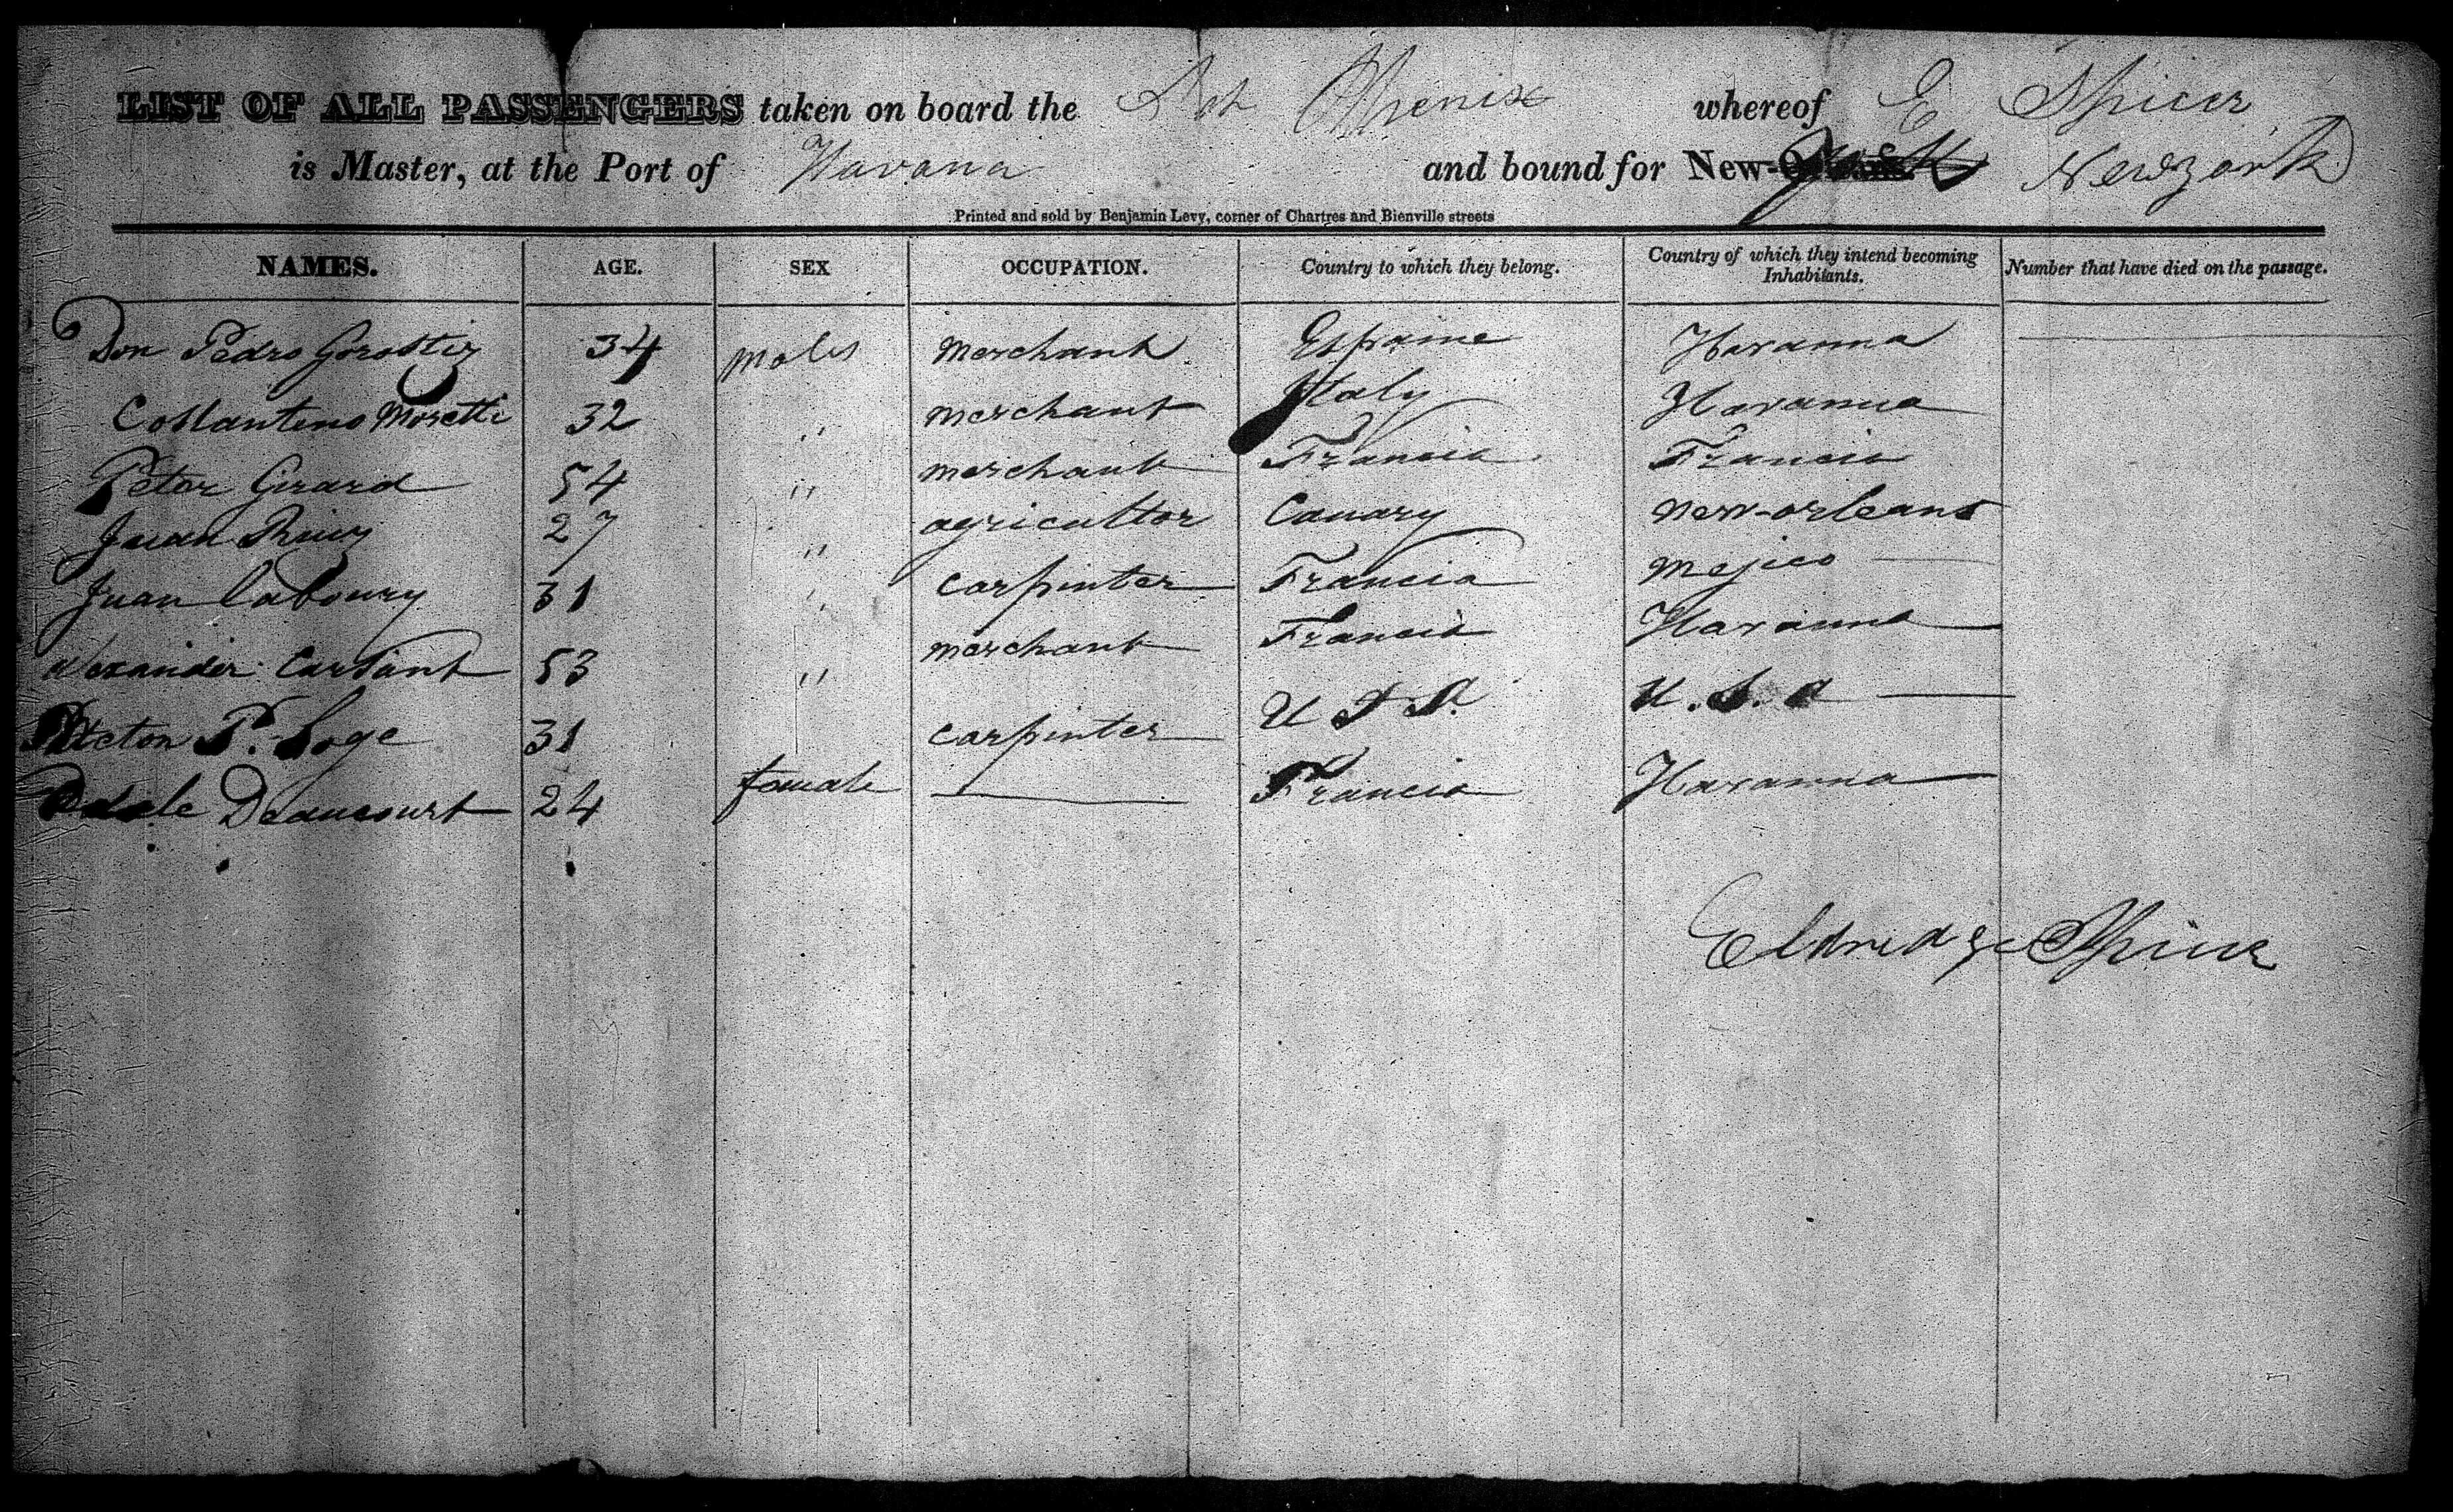 LIST OF ALL PASSENGERS taken on board the Sch Phenix whereof E Spicer
is Master, at the Port of Havana and bound for New- Newyork
Printed and sold by Benjamin Levy, corner of Chartres and Bienville streets
NAMES. AGE. SEX OCCUPATION. Country to which they belong. Country of which they intend becoming Inhabitants. Number that have died on the passage.
Don Pedro Gorostiz 34 males merchant Espaine Havanna
Costantino Moretti 32 " merchant Italy Havanna
Peter Girard 54 " merchant Francia Francia
Juan 27 " agricultor Canary new-orleans
Juan Laboury 31 " carpinter Francia mejico
Alexander 53 " merchant Francia Havanna
P. Loge 31 carpinter U S A U.S.a
Delancourt 24 female Francia Havanna
Eldredge Spicer